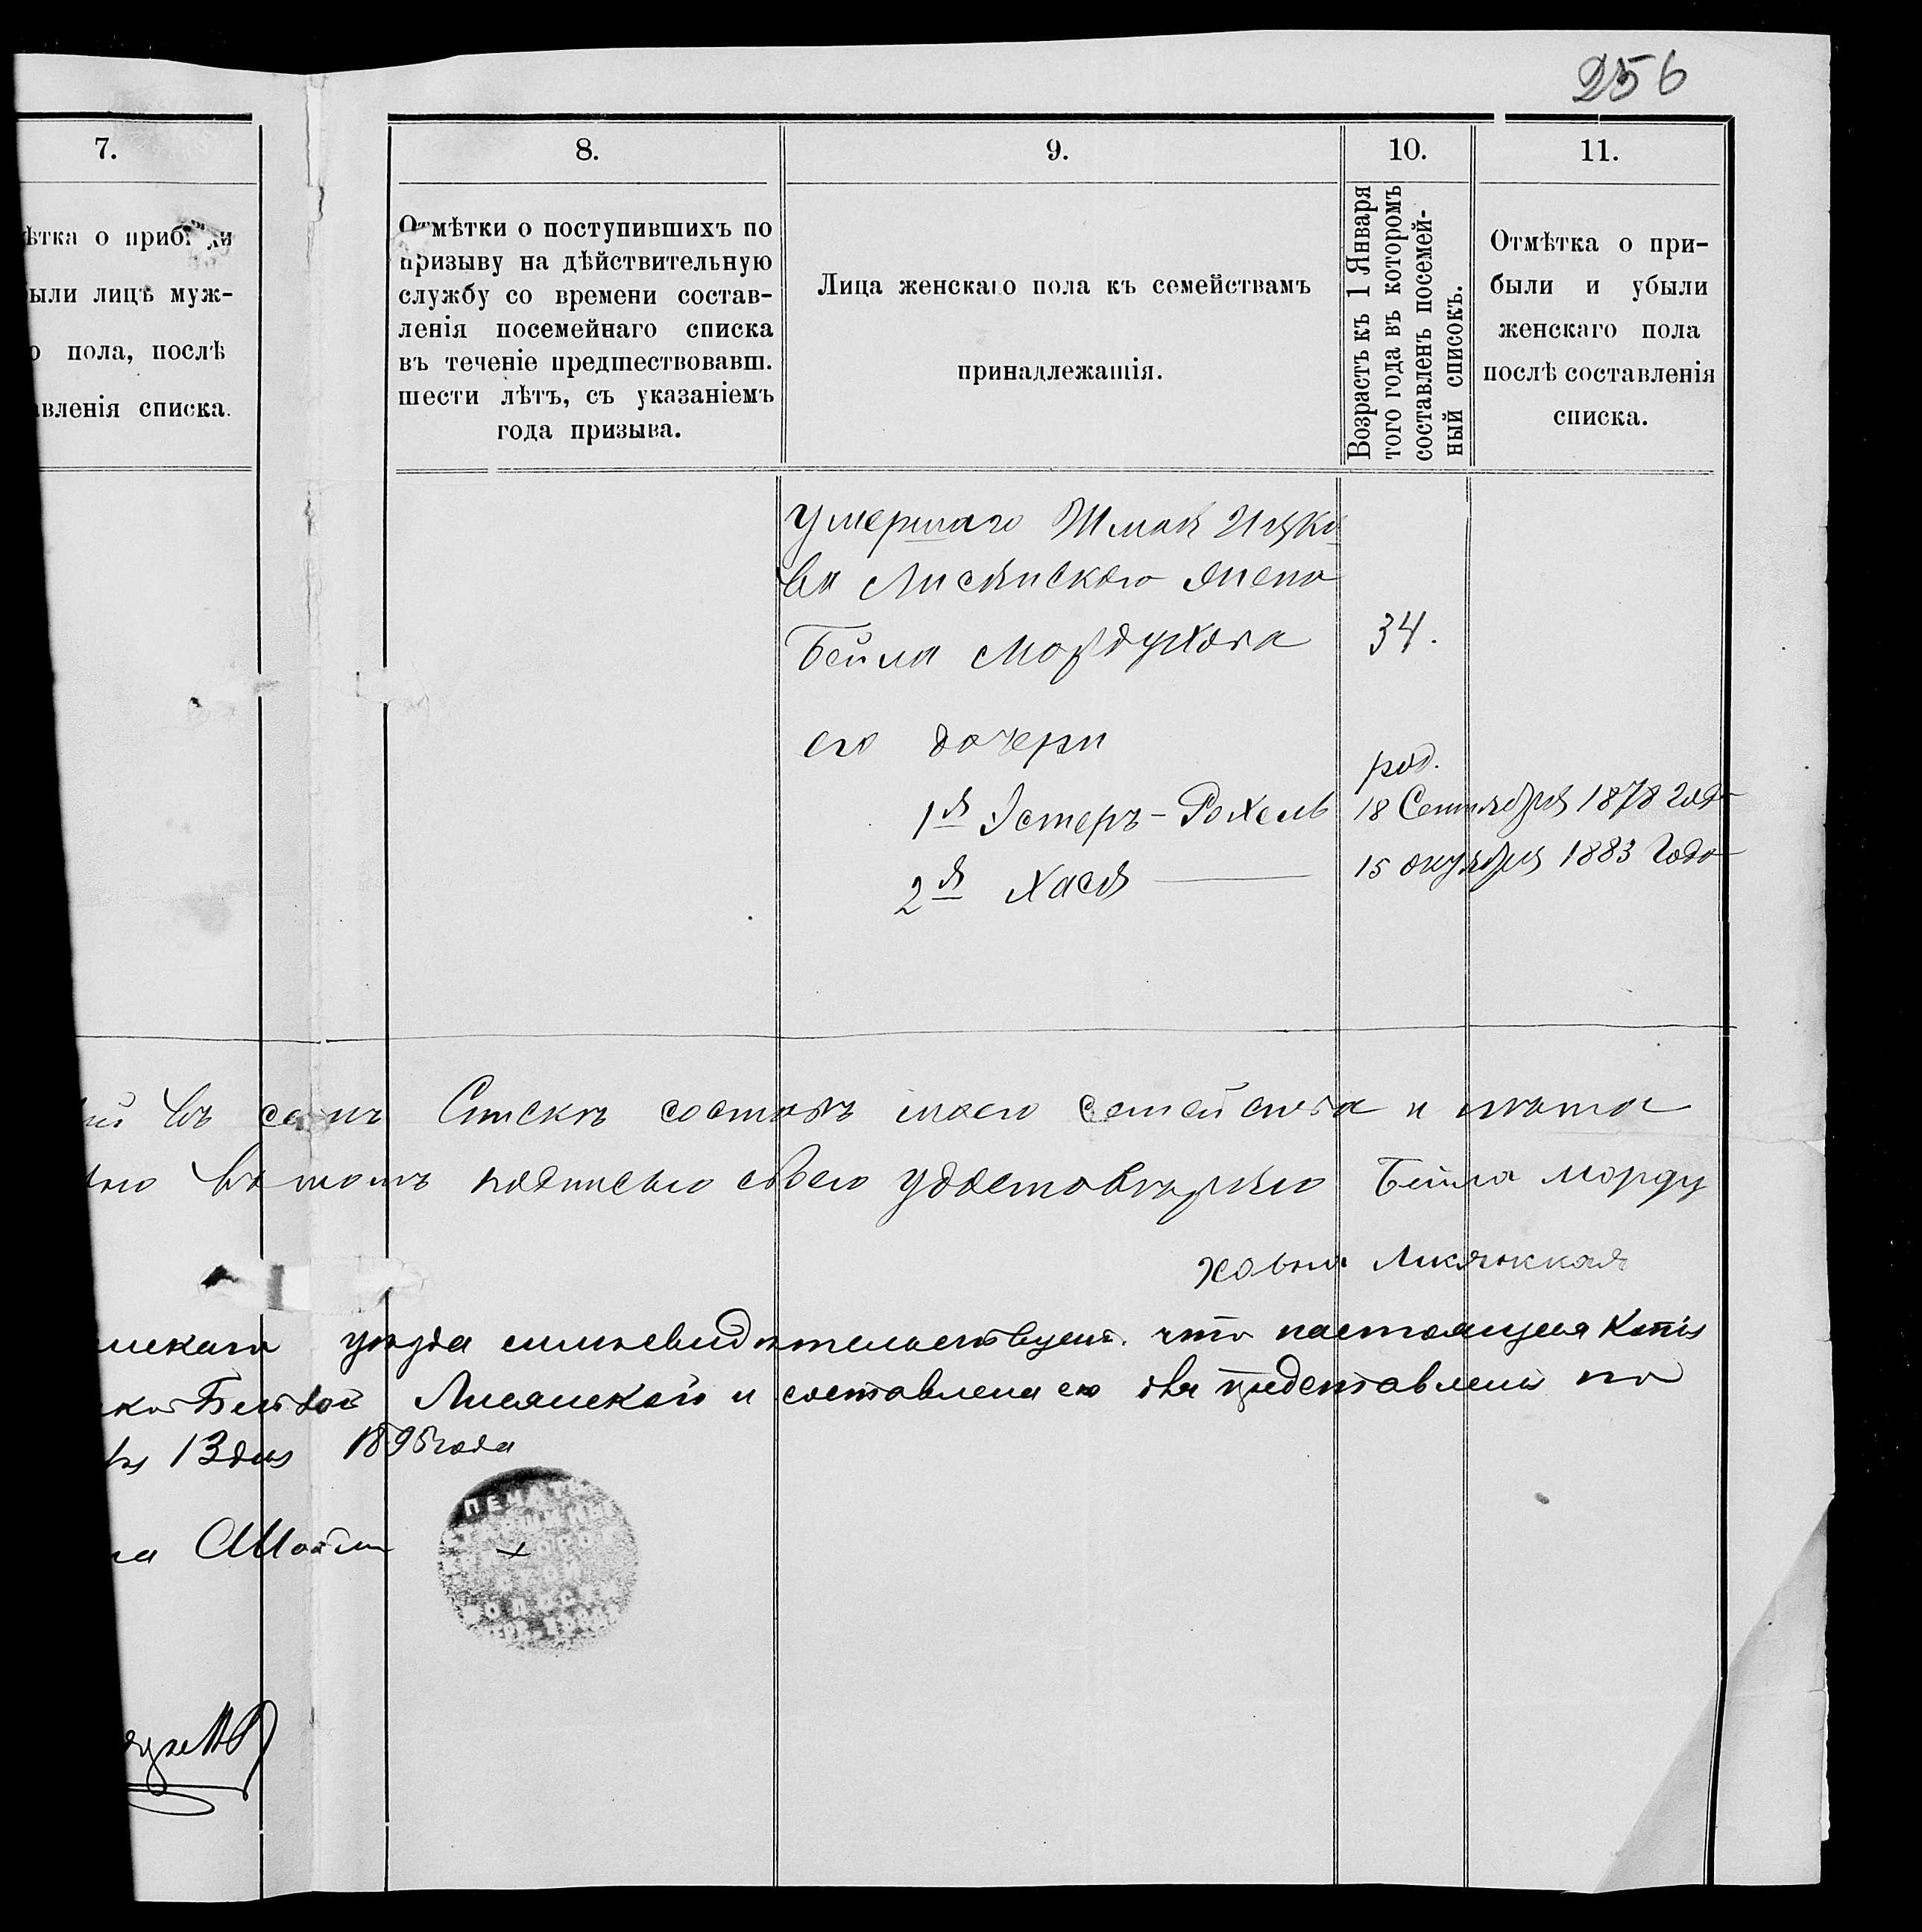 256
7.
ѣтка о прибыли
ыли лицъ муж-
о пола, послѣ
авленія списка.
8.
Отмѣтки о поступившихъ по
призыву на дѣйствительную
службу со времени состав-
ленія посемейнаго списка
въ теченіе предшествовавш.
шести лѣтъ, съ указаніемъ
года призыва.
9.
Лица женскаго пола къ семействамъ
принадлежащія.
10.
Возрастъ къ 1 Января
того года въ которомъ
составленъ посемей-
ный списокъ.
11.
Отмѣтка о при-
были и убыли
женскаго пола
послѣ составленія
списка.
умершаго Шмая Ицко
ва Лисянского жена
Бейла Мордухова 34.
его дочери
род.
1я Эстеръ-Рохель 18 Сентября 1878 года
2я Хася 15 октября 1883 Года
въ семъ Списке составъ моего семейства и
въ томъ подписью своею удостовѣряю Бейла Морду
хова Лисянская
уѣзда симъ свидѣтельствуетъ что настоящая Копія
Лисянской и составлена ею для представленія по
13 дня 1895 года
ПЕЧАТЬ
СТАРШИНЫ
СКОЙ
ВОЛОСТИ